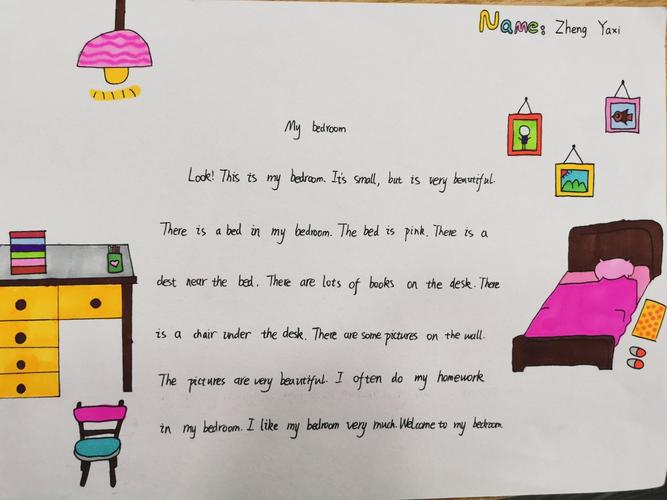 Name: Zheng Yaxi
My bedroom
Look! This is my bedroom. It's small, but is very beautiful.
There is a bed in my bedroom. The bed is pink. There is a
dest near the bed. There are lots of books on the desk. There
is a chair under the desk. There are some pictures on the wall.
The pictures are very beautiful. I often do my homework
in my bedroom. I like my bedroom very much. Welcome to my bedroom.